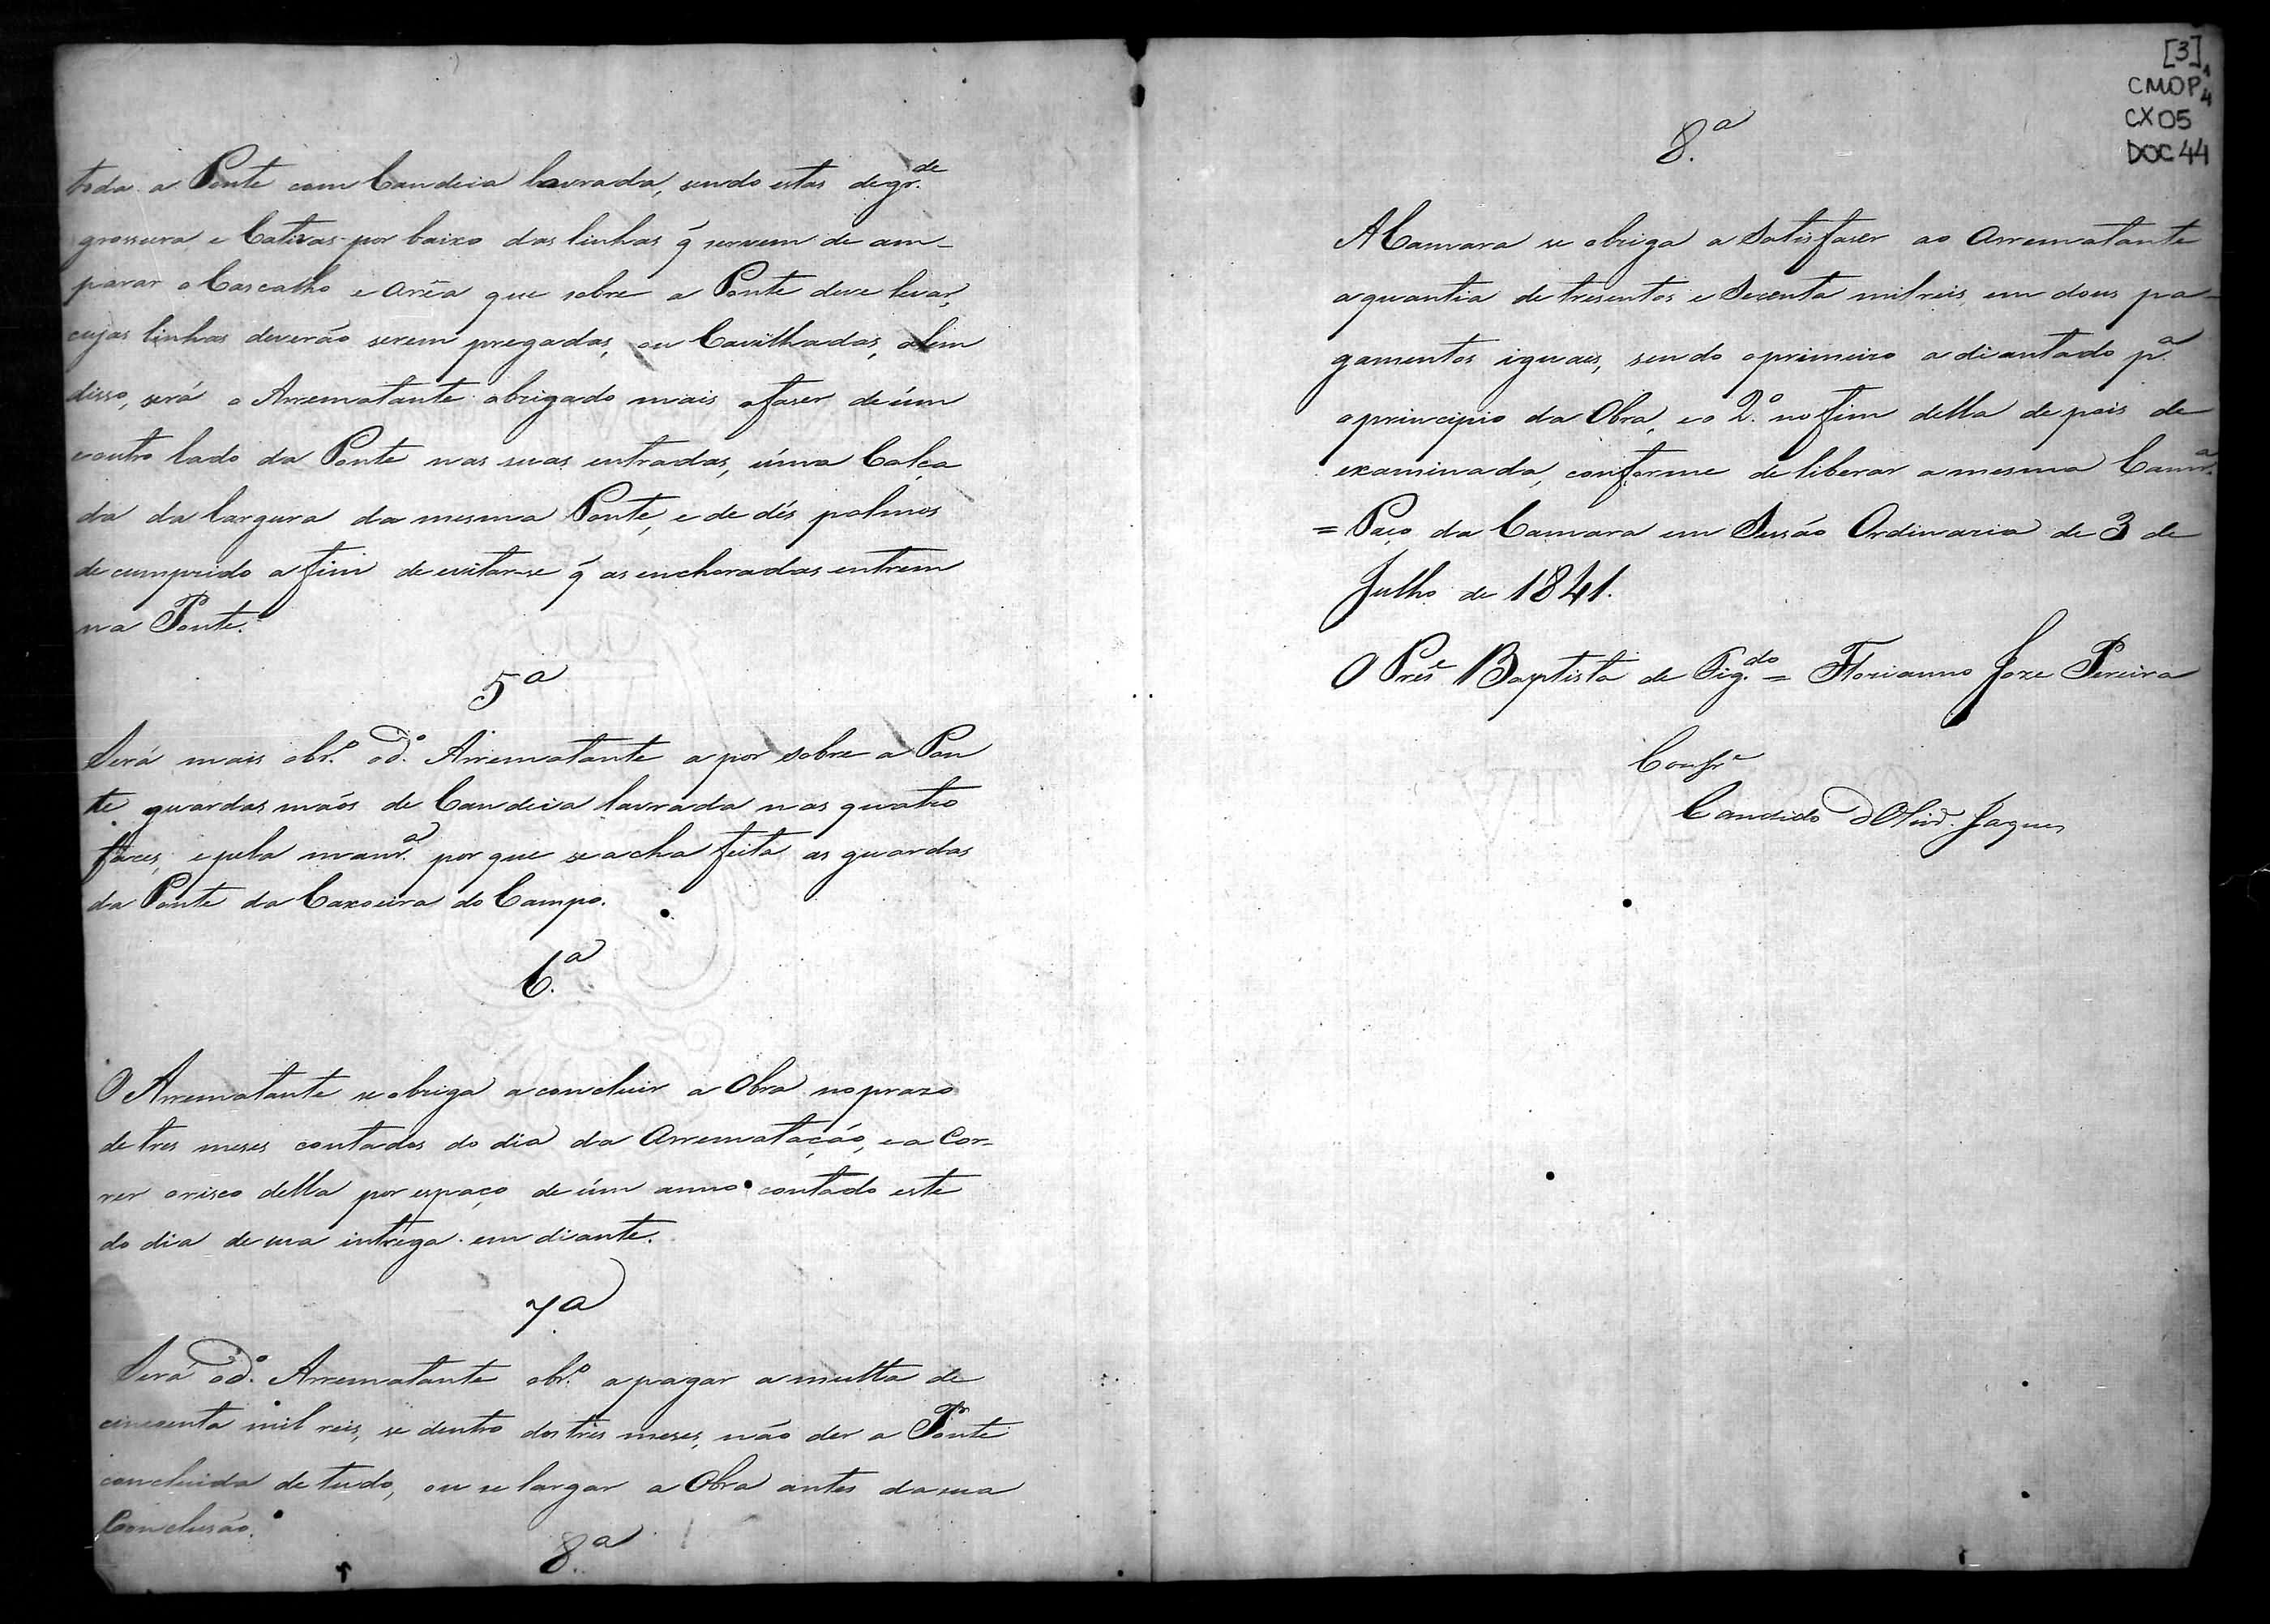 toda a Ponte com Candeia lavrada, sendo estas de gr.de
grossura e Cativas por baixo das linhas q̃ servem de am-
parar o Cascalho e arêa que sobre a Ponte deve levar,
cujas linhas deverão serem pregadas, ou Cavilhadas, alem
disso, será o Arrematante obrigado mais afaser de úm
e outro lado da Ponte nas suas entradas, úma Calça
da da largura da mesma Ponte, e de dés palmos
de cumprido a fim de evitar-se q̃ as enchoradas entrem
na Ponte.
5ª
Será mais obr.º o d.º Arrematante a por sobre a Pon
te guardas mãos de Candeia lavrada nas quatro
faces, e pela manr.ª por que se acha feita as guardas
da Ponte da Caxoeira do Campo.
6.ª
O Arrematante se obriga a concluir a Obra no praso
de tres meses contados do dia da Arrematação, e a Cor-
rer o risco della por espaço de úm anno contado este
do dia de sua intrega em diante.
7ª
Será o d.º Arrematante obr.º a pagar a multa de
cincoenta mil reis, se dentro dos tres meses, não der a Ponte
concluida de tudo, ou se largar a Obra antes da sua
Conclusão.
8.ª
[3]
CMOP
CX05
DOC 44
8.ª
A Camara se obriga a Satisfaser ao Arrematante
a quantia de tresentos e Secenta mil reis, em dous pa-
gamentos iguais, sendo o primeiro a diantado p.ª
o principio da Obra, e o 2.º no fim della depois de
examinada, conforme deliberar a mesma Camr.ª
= Paço da Camara em Sessão Ordinaria de 3 de
Julho de 1841.
O Pres.e Baptista de Fig.do = Florianno Joze Pereira
Confr.e
Candido d'Olivr.ª Jaques